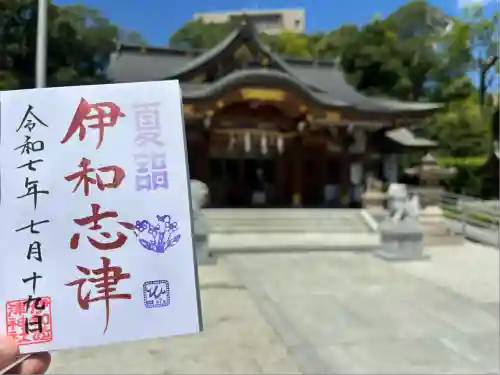 夏詣
伊和志津
令和七年七月十九日